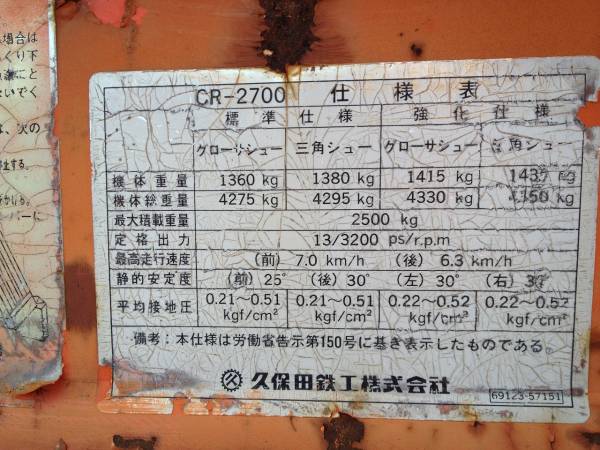 場合は
くり下
にと
いでく
は、次の
CR-2700 仕様表
標準仕様 強化仕様
グローサシュー 三角シュー グローサシュー 三角シュー
機体重量 1360 kg 1380 kg 1415 kg 1435 kg
機体総重量 4275 kg 4295 kg 4330 kg 4350 kg
最大積載重量 2500 kg
定格出力 13/3200 ps/r.p.m
最高走行速度 (前) 7.0 km/h (後) 6.3 km/h
静的安定度 (前) 25° (後) 30° (左) 30° (右) 30°
平均接地圧 0.21〜0.51 kgf/cm² 0.21〜0.51 kgf/cm² 0.22〜0.52 kgf/cm² 0.22〜0.52 kgf/cm²
備考:本仕様は労働省告示第150号に基き表示したものである。
久保田鉄工株式会社
69123-57151